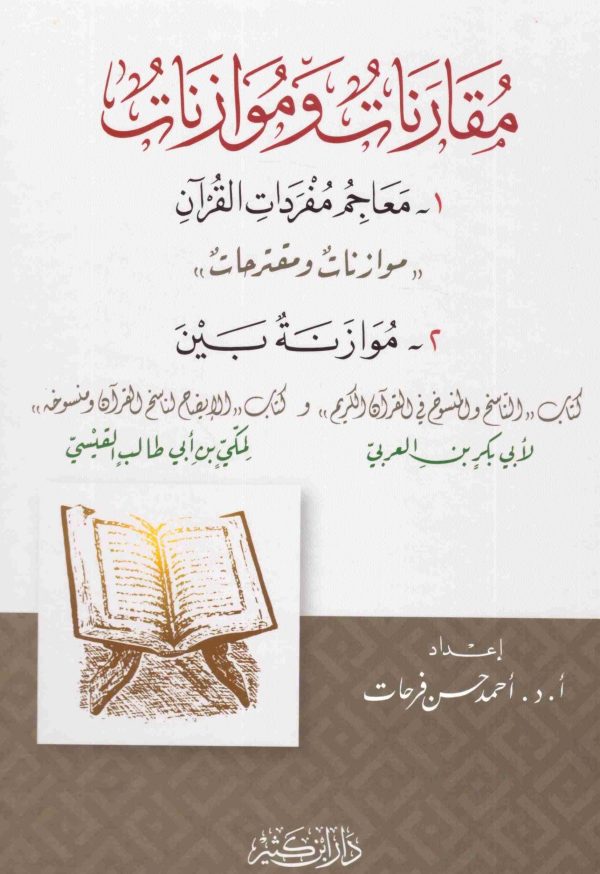 مُقَارَنَاتٌ وَمُوَازَنَاتٌ
١- مَعَاجِمُ مُفْرَدَاتِ القُرْآنِ
«موازناتٌ ومقترحاتٌ»
٢- مُوَازَنَةٌ بَيْنَ
كتاب «النّاسخ والمنسوخ في القرآن الكريم» و كتاب «الإيضاح لناسخ القرآن ومنسوخه»
لأبي بكرِ بنِ العربيّ لمكّيِّ بنِ أبي طالبٍ القيْسيّ
إعْداد
أ.د. أحمد حسن فرحات
دار ابن كثير